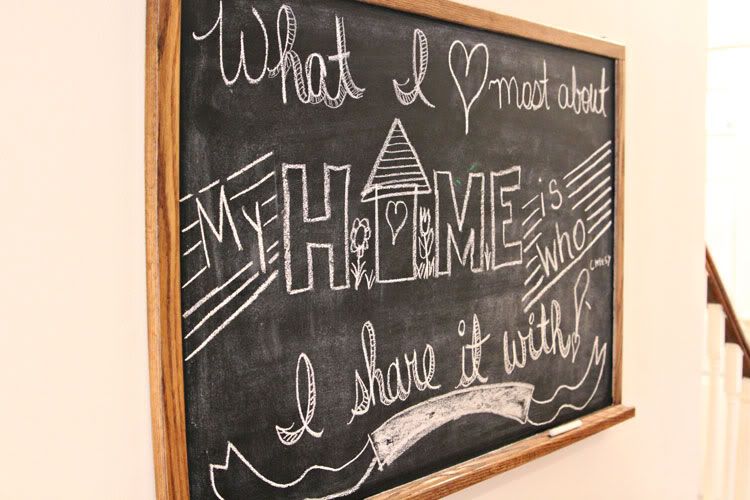 What I ♥ most about
My HOME is
who
I share it with!